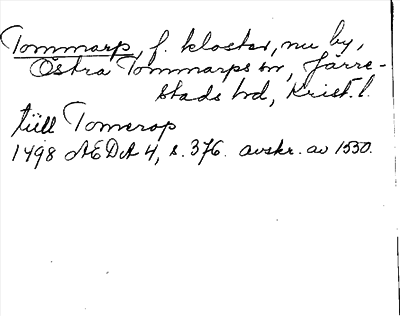 Tommarp, f. kloster, nu by,
Östra Tommarps sn, Järre-
stads hd, Krist. l.
tiill Tomerop
1498 AEDA 4, s. 376. avskr. av 1550.